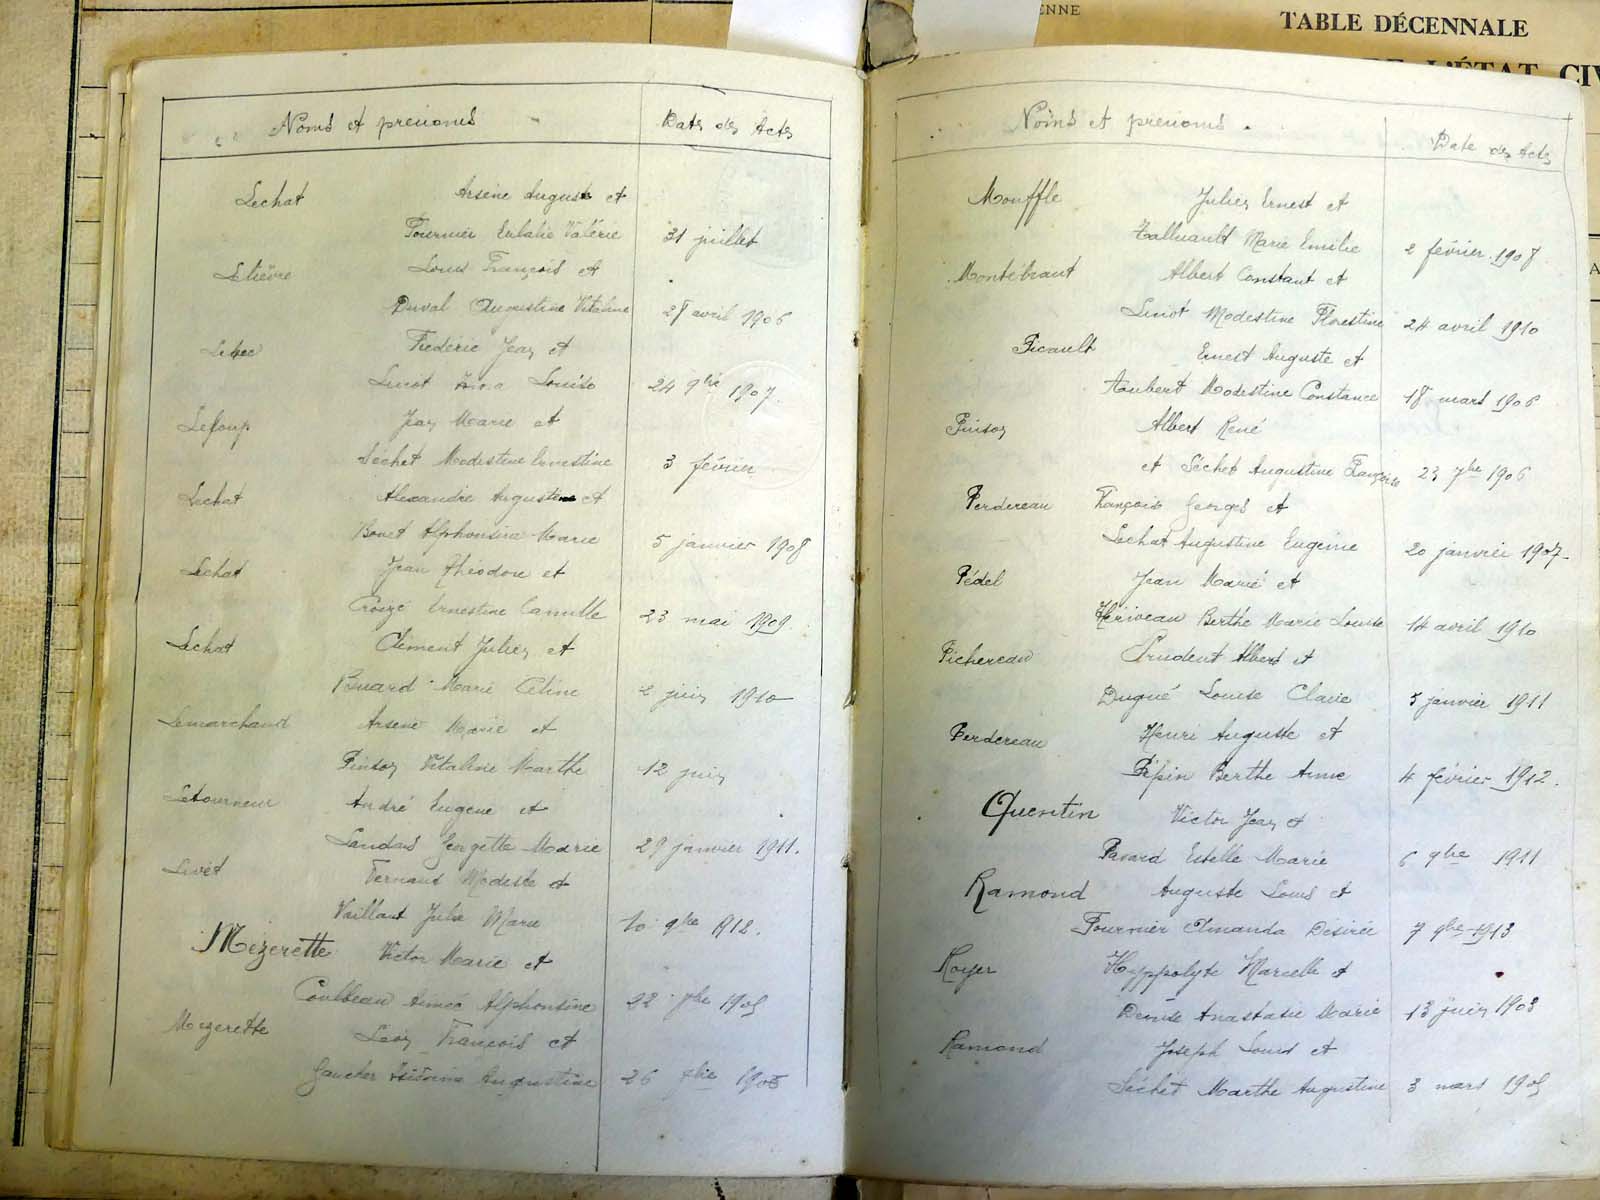 ENNE
TABLE DÉCENNALE
L'ÉTAT CIV
Noms et prenoms Dates des Actes
Lechat Arsène Auguste et
Fournier Eulalie Valérie 31 juillet
Lelièvre Louis François et
Duval Augustine Vitaline 28 avril 1906
Frédéric Jean et
Linot Louise 24 9bre 1907.
Leloup Jean Marie et
Séchet Modestine Ernestine 3 février
Lechat Alexandre Augustine et
Bouet Alphonsine Marie 5 janvier 1908
Lechat Jean Théodore et
Croizé Ernestine Camille 23 mai 1909.
Lechat Clément Julien et
Buard Marie Céline 2 juin 1910
Lemarchand Arsène Marie et
Pinson Vitaline Marthe 12 juin
Letourneur André Eugene et
Landais Georgette Marie 29 janvier 1911.
Livet Fernand Modeste et
Vaillant Julie Marie 10 9bre 1912.
Mézerette Victor Marie et
Coulbeau Aimée Alphonsine 22
Mezerette Léon François et
Gaucher Augustine 26
Noms et prenoms Date des Actes
Mouffle Julien Ernest et
Marie Emilie 2 février 1908
Montébraut Albert Constant et
Linot Modestine Florestine 24 avril 1910
Picault Ernest Auguste et
Aoubert Modestine Constance 18 mars 1906
Pinson Albert René
et Séchet Augustine Françoise 23 7bre 1906
Perdereau François Georges et
Lechat Augustine Eugenie 20 janvier 1907
Pédel Jean Marie et
Hériveau Berthe Marie Louise 14 avril 1910
Pichereau Prudent Albert et
Dugué Louise Clarie 5 janvier 1911
Perdereau Henri Auguste et
Pépin Berthe Aime 4 février 1912.
Quentin Victor Jean et
Pavard Estelle Marie 6 9bre 1911
Ramond Auguste Louis et
Fournier Amanda Désirée 7 9bre 1913
Royer Hyppolyte Marcelle et
Denise Anastasie Marie 13 juin 1903
Ramond Joseph Louis et
Séchet Marthe Augustine 3 mars 1905